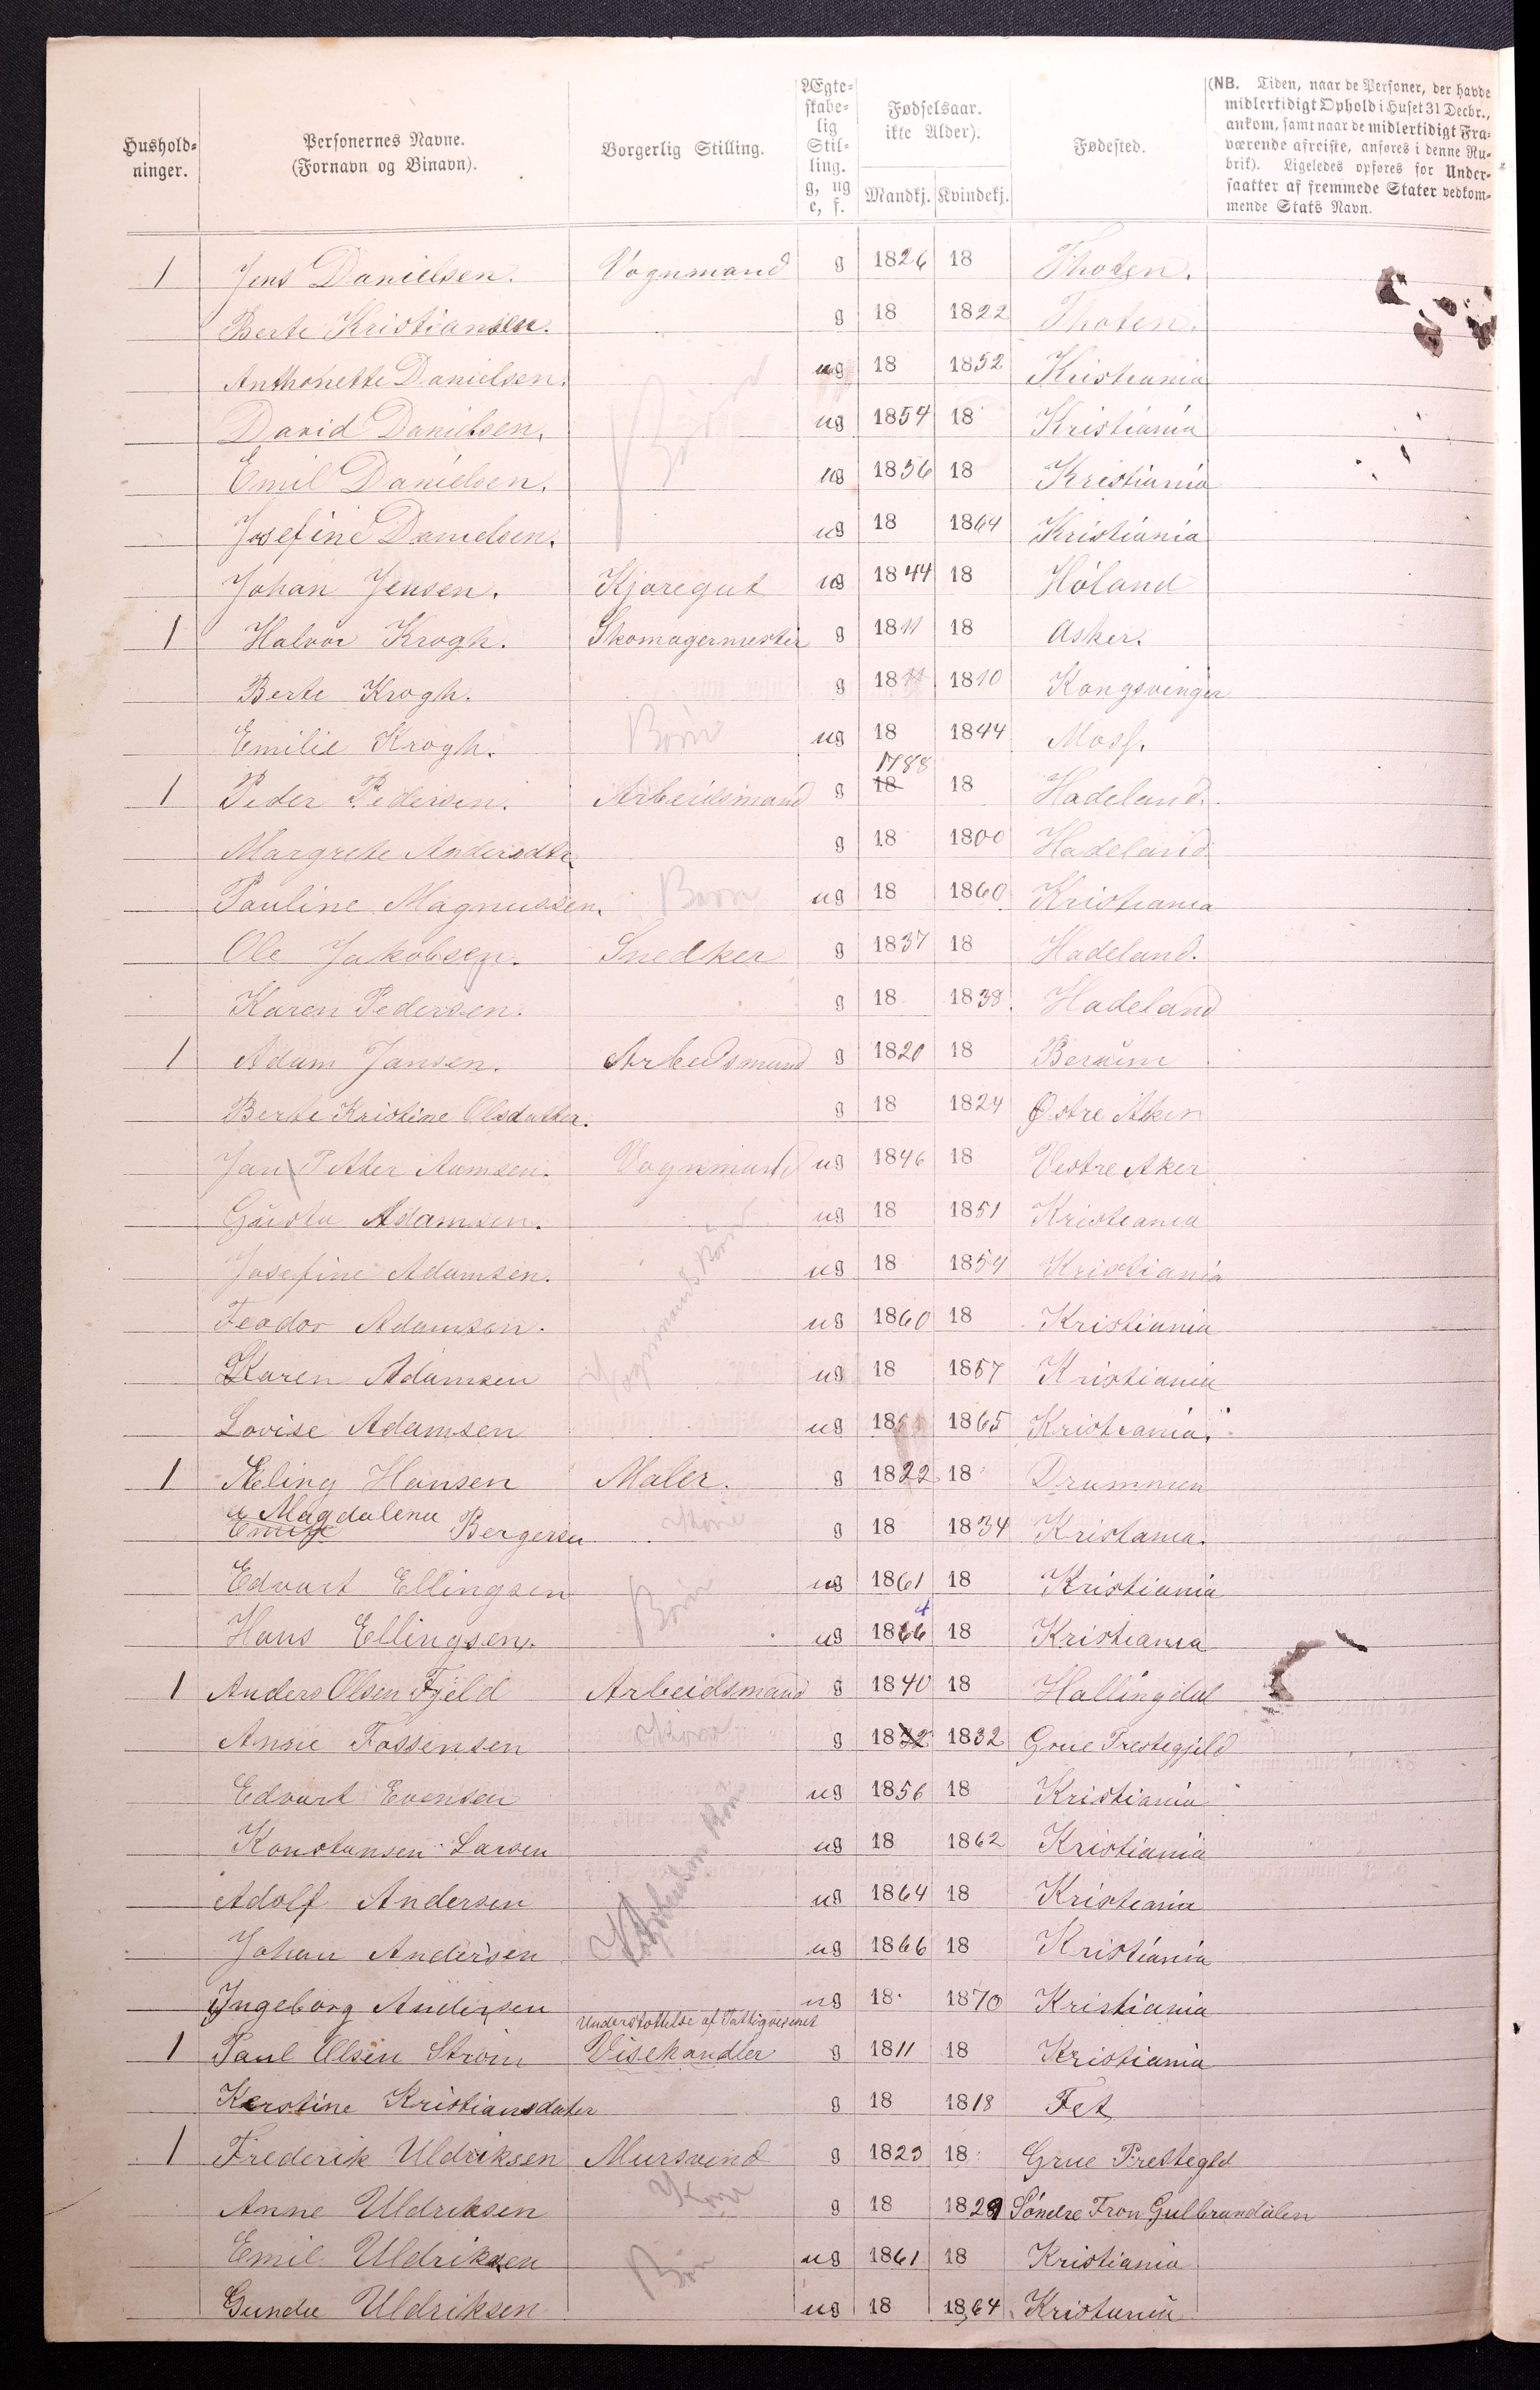 Hushold-
ninger.
Personernes Navne.
(Fornavn og Binavn).
Borgerlig Stilling.
Ægte-
skabe-
lig
Stil-
ling.
g, ug
e, f.
Fødselsaar.
ikke Alder).
Mandkj. Kvindekj.
Fødested.
(NB. Tiden, naar de Personer, der havde
midlertidigt Ophold i Huset 31 Decbr.,
ankom, samt naar de midlertidigt Fra-
værende afreiste, anføres i denne Ru-
brik). Ligeledes opføres for Under-
saatter af fremmede Stater vedkom-
mende Stats Navn.
1 Jens Danielsen. Vognmand g 1826 18 Thoten.
Berte Kristiansen. g 18 1822 Thoten.
Anthonette Danielsen. ug 18 1852 Kristiania
Børn
David Danielsen. ug 1854 18 Kristiania
Emil Danielsen. ug 1856 18 Kristiania
Josefine Danielsen. ug 18 1864 Kristiania
Johan Jensen. Kjøregut ug 1844 18 Høland
1 Halvor Krogh. Skomagermester g 1811 18 Asker.
Berte Krogh. g 1811 1810 Kongsvinger
Emilie Krogh. Børn ug 18 1844 Moss.
1788
1 Peder Pedersen. Arbeidsmand g 18 18 Hadeland.
Margrete Andersdtr g 18 1800 Hadeland
Pauline Magnussen. Barn ug 18 1860 Kristiania
Ole Jakobsen. Snedker g 1837 18 Hadeland.
Karen Pedersen. g 18 1838. Hadeland
1 Adam Jansen. Arbeidsmand g 1820 18 Berum
Berte Kristine Olsdatter. g 18 1824 Østre Aker
Jan Petter Aamsen. Vognmand ug 1846 18 Vestre Aker
Gusta Adamsen. ug 18 1851 Kristiania
Vognmands Børn
Josefine Adamsen. ug 18 1854 Kristiania
Feodor Adamsen. ug 1860 18 Kristiania
Karen Adamsen ug 18 1857 Kristiania
Lovise Adamsen ug 18 1865 Kristiania.
1 Eling Hansen Maler. g 1822 18 Drammen
a Magdalena
Emilie Bergersen Kone g 18 1834 Kristania.
Edvart Ellingsen Børn ug 1861 18 Kristiania
Hans Ellingsen. ug 1866 18 Kristiania
1 Anders Olsen Fjeld Arbeidsmand g 1840 18 Hallingdal
Anne Fossensen Kone g 1832 1832 Grue Prestegjeld
Edvart Evensen ug 1856 18 Kristiania
Konstansen Larsen ug 18 1862 Kristiania
Adolf Andersen ug 1864 18 Kristiania
Johan Andersen ug 1866 18 Kristiania
Ingeborg Andersen ug 18 1870 Kristiania
Understøttelse af Fattigvesenet
1 Paul Olsen Strøm Visehandler g 1811 18 Kristiania
Kerstine Kristiansdater g 18 1818 Fet
1 Frederik Uldriksen Mursvend g 1823 18 Grue Prestegld
Anne Uldriksen Kone g 18 1829 Søndre Fron Gulbrandalen
Emil Uldriksen Børn ug 1861 18 Kristiania
Gunda Uldriksen ug 18 1864 Kristiania